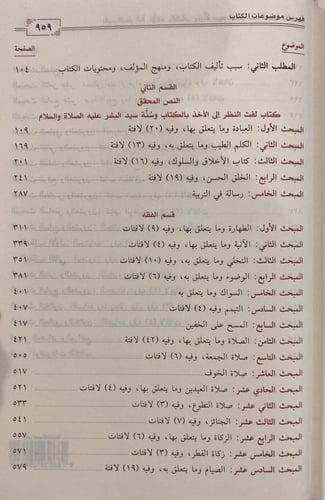 فهرس موضوعات الكتاب ٩٥٩
الموضوع الصفحة
المطلب الثاني: سبب تأليف الكتاب، ومنهج المؤلف، ومحتويات الكتاب ١٠٤
القسم الثاني
النص المحقق
كتاب لفت النظر إلى الأخذ بالكتاب وسُنَّة سيد البشر عليه الصلاة والسلام
المبحث الأول: العبادة وما يتعلق بها، وفيه (٢٠) لافتة ١٠٩
المبحث الثاني: الكلم الطيب وما يتعلق به، وفيه (١٣) لافتة ١٦٩
المبحث الثالث: كتاب الأخلاق والسلوك، وفيه (١٦) لافتة ٢٠١
المبحث الرابع: الحقوق وما يتعلق بها، وفيه (١٩) لافتة ٢٤١
المبحث الخامس: رسالة في التربية ٢٨٧
قسم الفقه
المبحث الأول: الطهارة وما يتعلق بها، وفيه (٩) لافتات ٣١١
المبحث الثاني: الآنية وما يتعلق بها، وفيه (٤) لافتات ٣٣٩
المبحث الثالث: التخلي وما يتعلق به، وفيه (١٠) لافتات ٣٥١
المبحث الرابع: الوضوء وما يتعلق به، وفيه (٦) لافتات ٣٨١
المبحث الخامس: السواك وما يتعلق به ٤٠١
المبحث السادس: التيمم وفيه (٤) لافتات ٤٠٧
المبحث السابع: المسح على الخفين ٤١٧
المبحث الثامن: الصلاة وما يتعلق بها، وفيه (٤٢) لافتة ٤٢١
المبحث التاسع: صلاة الجمعة، وفيه (٦) لافتات ٥٠٥
المبحث العاشر: صلاة الخوف ٥١٧
المبحث الحادي عشر: صلاة العيدين وما يتعلق بها، وفيه (٤) لافتات ٥٢١
المبحث الثاني عشر: صلاة التطوع، وفيه (٣) لافتات ٥٣٣
المبحث الثالث عشر: الجنائز، وفيه (٧) لافتات ٥٤١
المبحث الرابع عشر: الزكاة وما يتعلق بها، وفيه (٦) لافتات ٥٥٧
المبحث الخامس عشر: زكاة الفطر، وفيه (٣) لافتات ٥٧١
المبحث السادس عشر: الصيام وما يتعلق به، وفيه (١٩) لافتة ٥٧٩